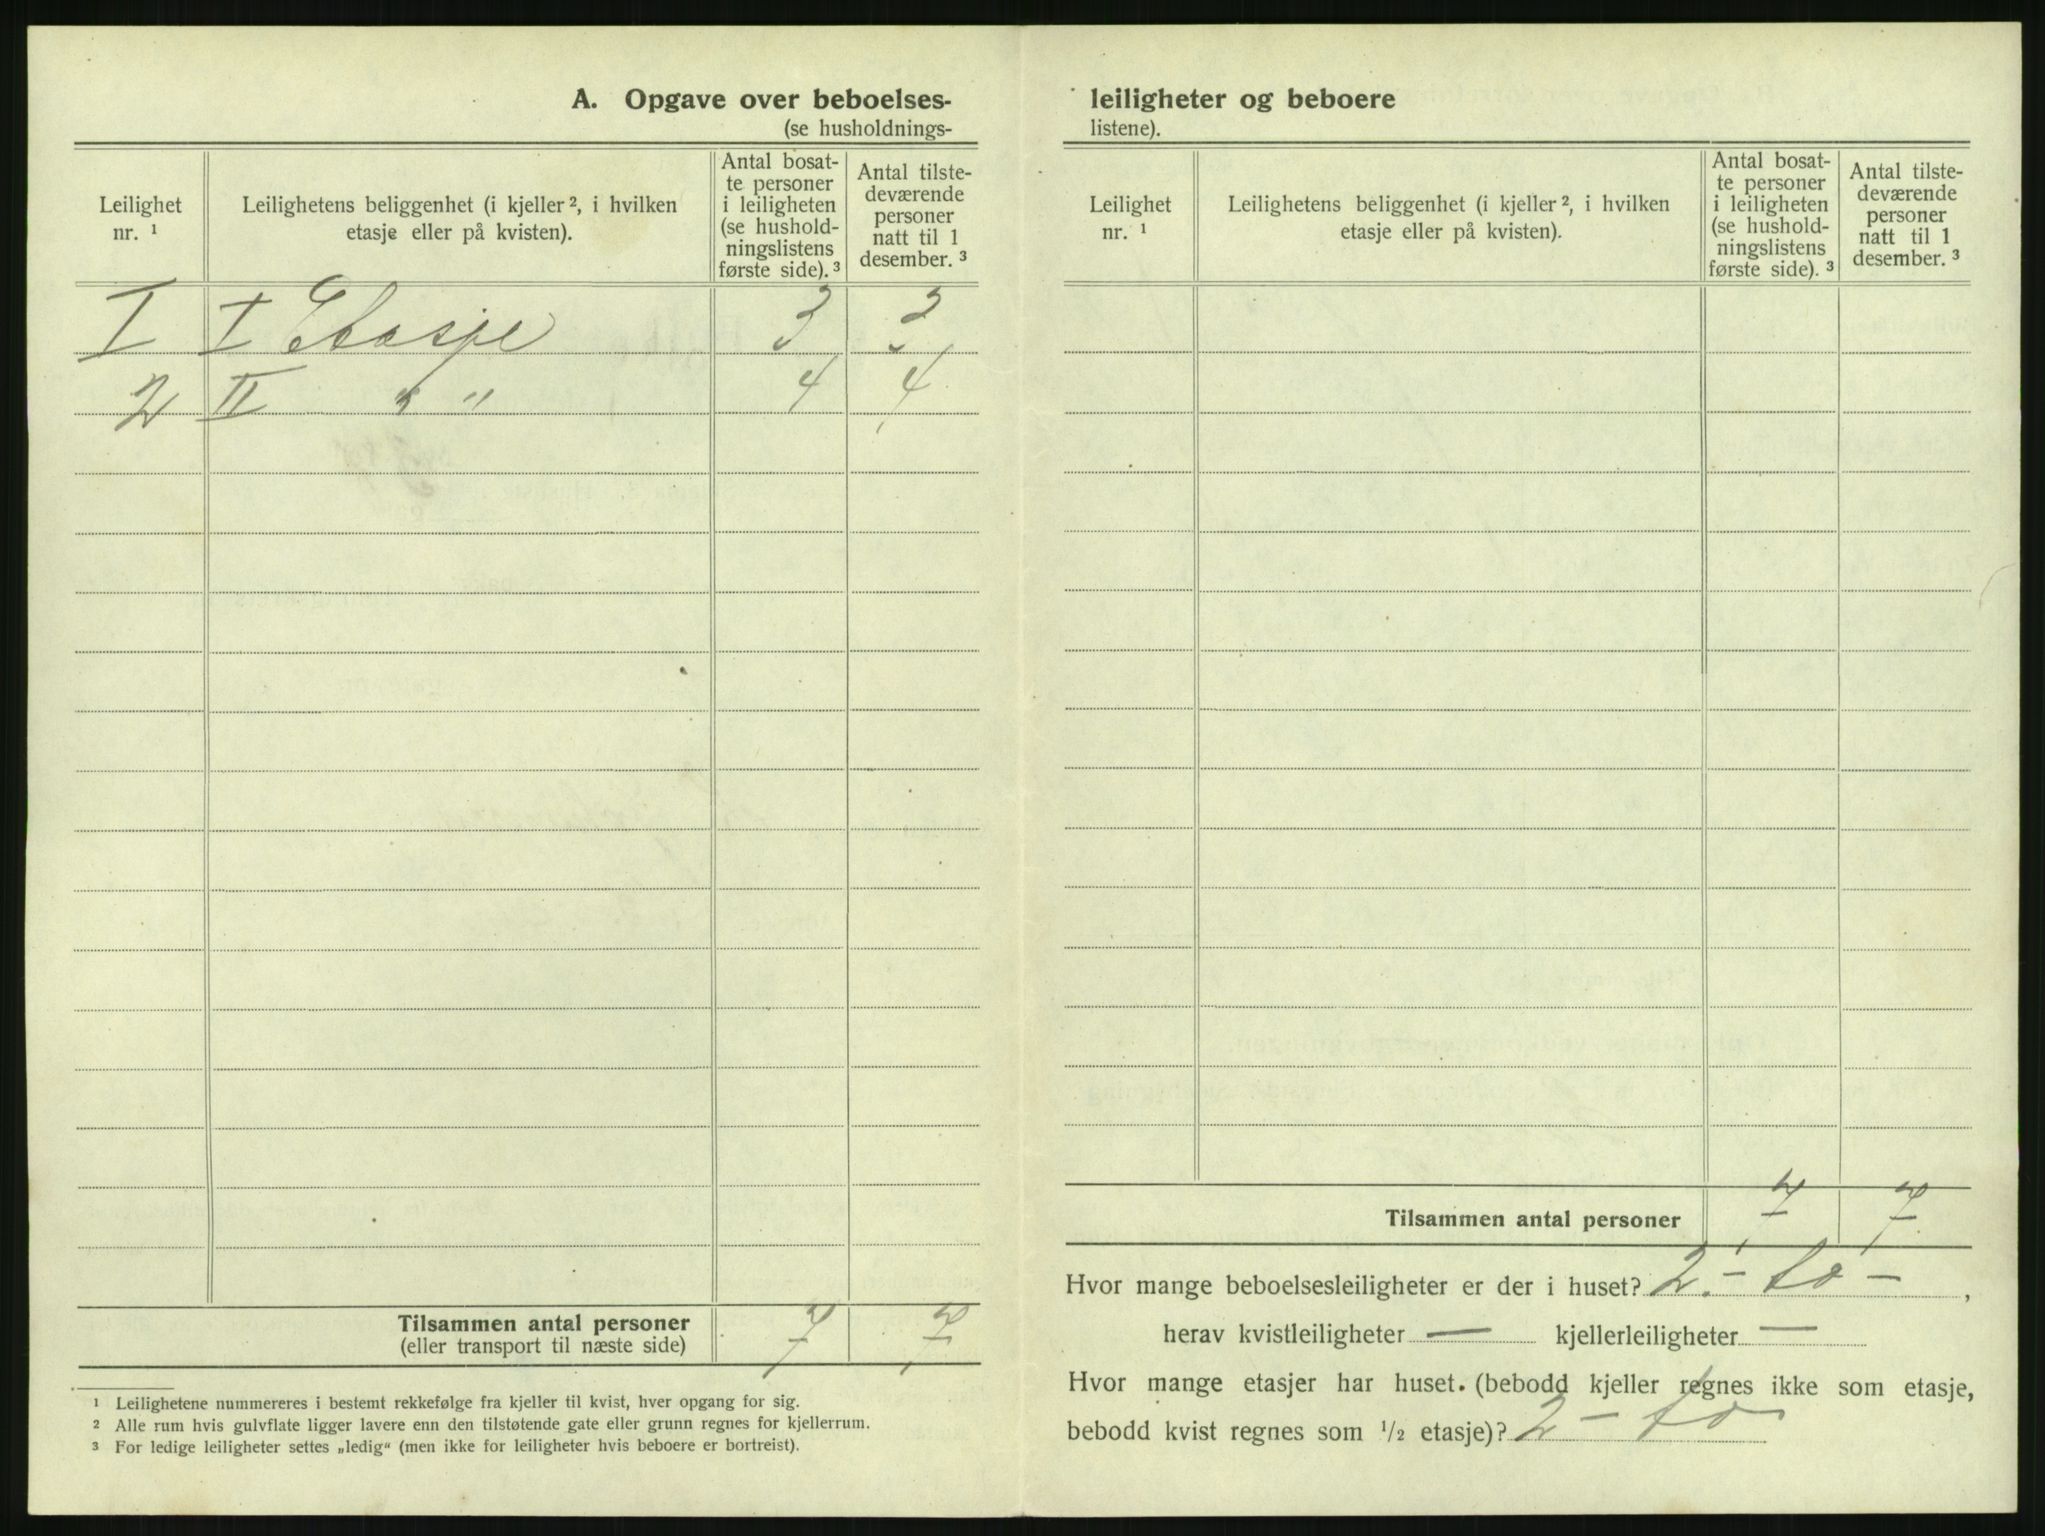 A. Opgave over beboelses-
(se husholdnings-
Leilighet
nr. ¹
Leilighetens beliggenhet (i kjeller ², i hvilken
etasje eller på kvisten).
Antal bosat-
te personer
i leiligheten
(se hushold-
ningslistens
første side). ³
Antal tilste-
deværende
personer
natt til 1
desember. ³
I I Etasje 3 3
2 II " " 4 4
Tilsammen antal personer 7 7
(eller transport til næste side)
¹ Leilighetene nummereres i bestemt rekkefølge fra kjeller til kvist, hver opgang for sig.
² Alle rum hvis gulvflate ligger lavere enn den tilstøtende gate eller grunn regnes for kjellerrum.
³ For ledige leiligheter settes „ledig“ (men ikke for leiligheter hvis beboere er bortreist).
leiligheter og beboere
listene).
Leilighet
nr. ¹
Leilighetens beliggenhet (i kjeller ², i hvilken
etasje eller på kvisten).
Antal bosat-
te personer
i leiligheten
(se hushold-
ningslistens
første side). ³
Antal tilste-
deværende
personer
natt til 1
desember. ³
Tilsammen antal personer 7 7
Hvor mange beboelsesleiligheter er der i huset? 2. – to – ,
herav kvistleiligheter — kjellerleiligheter —
Hvor mange etasjer har huset. (bebodd kjeller regnes ikke som etasje,
bebodd kvist regnes som ½ etasje)? 2 – to